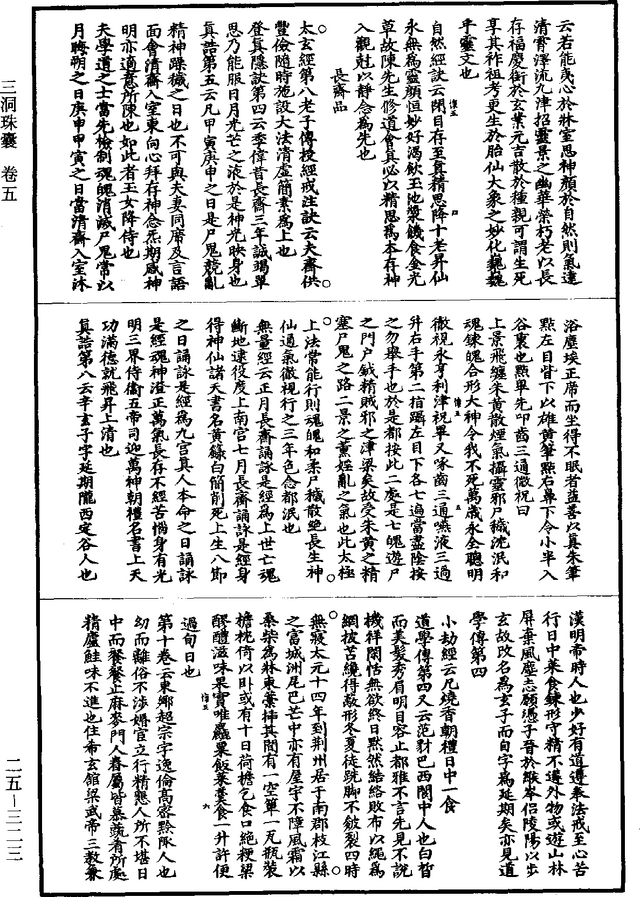 云若能夷心於牀室思神顏於自然則氣遠
清霄澤流九津招靈景之幽華榮朽老以長
存福慶衍於玄業元吉散於種親可謂生死
享其祚祖考更生於胎仙大象之妙化巍巍
乎靈文也
自然經訣云閉目存至真精思降十老昇仙
永無為靈顏恒妙好渴飲玉池漿饑食金光
草故陳先生修道會真必以精思為本存神
入觀以靜念為先也
長齋品
太玄經第八老子傳授經戒注訣云夫齋供
豐儉隨時施設大法清虛簡素為上也
登真隱訣第四云李偉昔長齋三年誠竭單
思乃能服日月光芒之液於是神光映身也
真誥第五云凡甲寅庚申之日是尸鬼競亂
精神躁穢之日也不可與夫妻同席及言語
面會清齋入室東向心拜存神念炁期感神
明亦適意所陳也如此者玉女降侍也
夫學道之士當先檢制魂魄消滅尸鬼常以
月晦朔之日庚申甲寅之日當清齋入室沐
浴塵埃正席而坐得不眠者益善以真朱筆
點左目眥下以雄黃筆點右鼻下令小半入
谷裏也點畢先叩齒三通微祝曰
上景飛纏朱黃散煙氣攝靈邪尸穢沈泯和
魂鍊魄合形大神令我不死萬歲永全聰明
徹視永享利津祝畢又啄齒三通嚥液三過
并右手第二指躡左目下各七過當盡陰按
之勿舉手也於是都按此二處是七魄遊尸
之門戶鉞精賊邪之津梁矣故受朱黃之精
塞尸鬼之路二景之薰婬亂之氣也此太極
上法常能行則魂魄和柔尸穢散絕長生神
仙通氣徹視行之三年色念都泯也
無量經云正月長齋誦詠是經為上世亡魂
斷地逮役度上南宮七月長齋誦詠是經身
得神仙諸天書名黃籙白簡削死上生八節
之日誦詠是經為九宮真人本命之日誦詠
是經魂神澄正萬氣長存不經苦惱身有光
明三界侍衛五帝司迎萬神朝禮名書上天
功滿德就飛昇上清也
真誥第八云辛玄子字延期隴西定谷人也
漢明帝時人也少好有道遵奉法戒至心苦
行日中菜食鍊形守精不遘外物或遊山林
屏棄風塵志願憑子晉於緱岑侶陵陽以步
玄故改名為玄子而自字為延期矣亦見道
學傳第四
小劫經云凡燒香朝禮日中一食
道學傳第四又云范豺巴西閬中人也白皙
而美髮秀眉明目容止都雅不言先見不說
機祥閑恬無欲終日黙然結絡敗布以繩為
網披苫繞得敷形冬夏徒跣腳不皴裂四時
無寢太元十四年到荊州居于南郡枝江縣
之富城洲尾巴芒中亦有屋宇不障風霜以
桑柴為牀東藁插其間有一空單一瓦瓶裝
檐枕倚以卧或有十日荷檐乞食口絕粳粱
醪醴滋味果實唯麤粟飯葉羹食一升許便
過旬日也
第十卷云東鄉超宗字逸倫高密黔陬人也
幼而離俗不涉婚宦立行精懇人所不堪日
中而餐餐止麻麥門人眷屬皆慕蔬肴所處
精廬鮭味不進也住希玄館梁武帝三教兼
三洞珠囊 卷五
二五—三二三